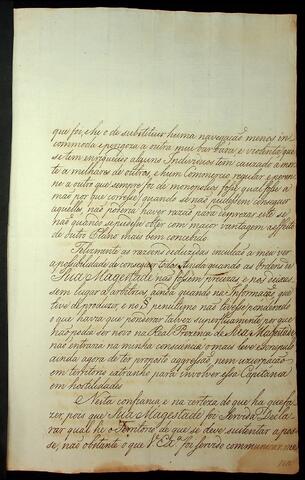 que foi, e he o de substituir huma navegação menos in-
commoda e perigoza a outra mui barbara, e violenta, que
se tem enriquecido alguns Individuos tem cauzado a mor-
te a milhares de outros, e hum Commercio regular e peren-
ne a outro que sempre foi de monopolio, pela qual
mão por que corresse; quando se não pudessem conseguir
aquelles, não poderia haver razão para desprezar este se
não quando se pudesse obter com maior vantagem a effeito
de outro Plano mais bem concebido
Felizmente as razoens deduzidas incitão a meu ver
a probabilidade de conseguir tudo, ainda quando as Ordens de
Sua Magestade não fossem precizas, e nos deixas-
sem lugar a arbitrios, ainda quando na Informação, que
tive de produzir, e no § penultimo não tivesse ponderado
o que havia que ponderar talvez superfluamente, por que
não podia ser novo na Real Prezença de Sua Magestade
não entrava na minha consciencia o mais leve escrupulo
ainda agora de ter proposto aggressão, nem uzurpação
em territorio estranho para involver essa Capitania
em hostilidades
Nesta confiança e na certeza do que ha que fa-
zer, pois que Sua Magestade foi Servida Decla-
rar qual he o Territorio de que se deve sustentar a pos-
se, não obstante o que V. Exª foi servido communicar-me